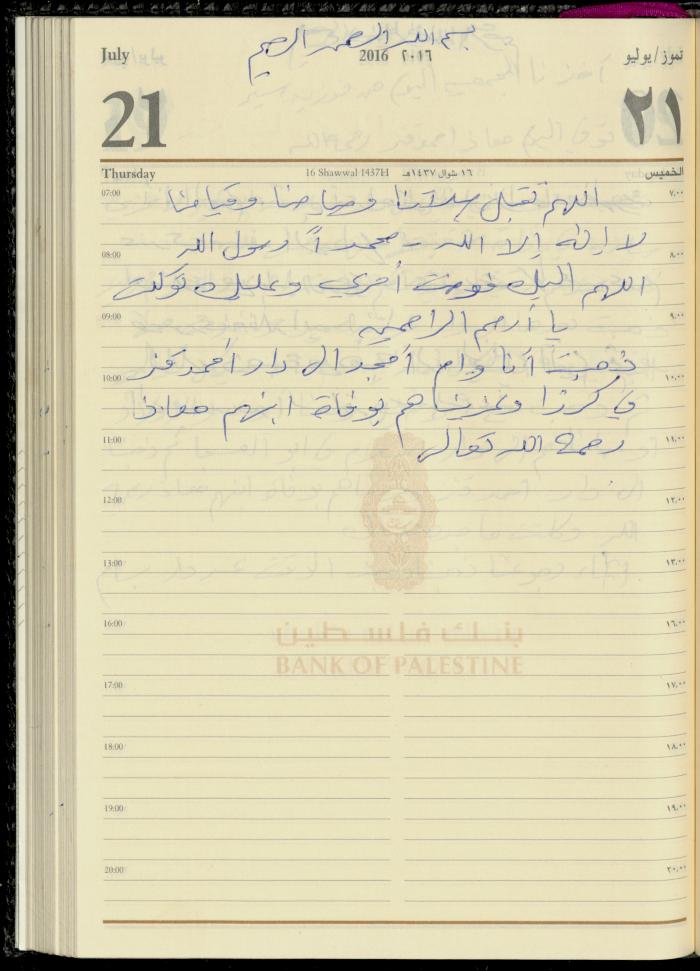 بسم الله الرحمن الرحيم
July 2016 ٢٠١٦ تموز/يوليو
21 ٢١
Thursday 16 Shawwal 1437H ١٦ شوال ١٤٣٧هـ الخميس
07:00 اللهم تقبل صلاتنا وصيامنا وقيامنا ٧,٠٠
لا إله إلا الله - محمداً رسول الله
08:00 ٨,٠٠
اللهم إليك فوضت أمري وعليك توكلت
09:00 يا أرحم الراحمين ٩,٠٠
ذهبت أنا وام أمجد الى دار أحمد
10:00 ١٠,٠٠
في كرزا وعزيناهم بوفاة ابنهم معاذ
11:00 رحمه الله تعالى ١١,٠٠
12:00 ١٢,٠٠
13:00 ١٣,٠٠
16:00 ١٦,٠٠
بنك فلسطين
BANK OF PALESTINE
17:00 ١٧,٠٠
18:00 ١٨,٠٠
19:00 ١٩,٠٠
20:00 ٢٠,٠٠